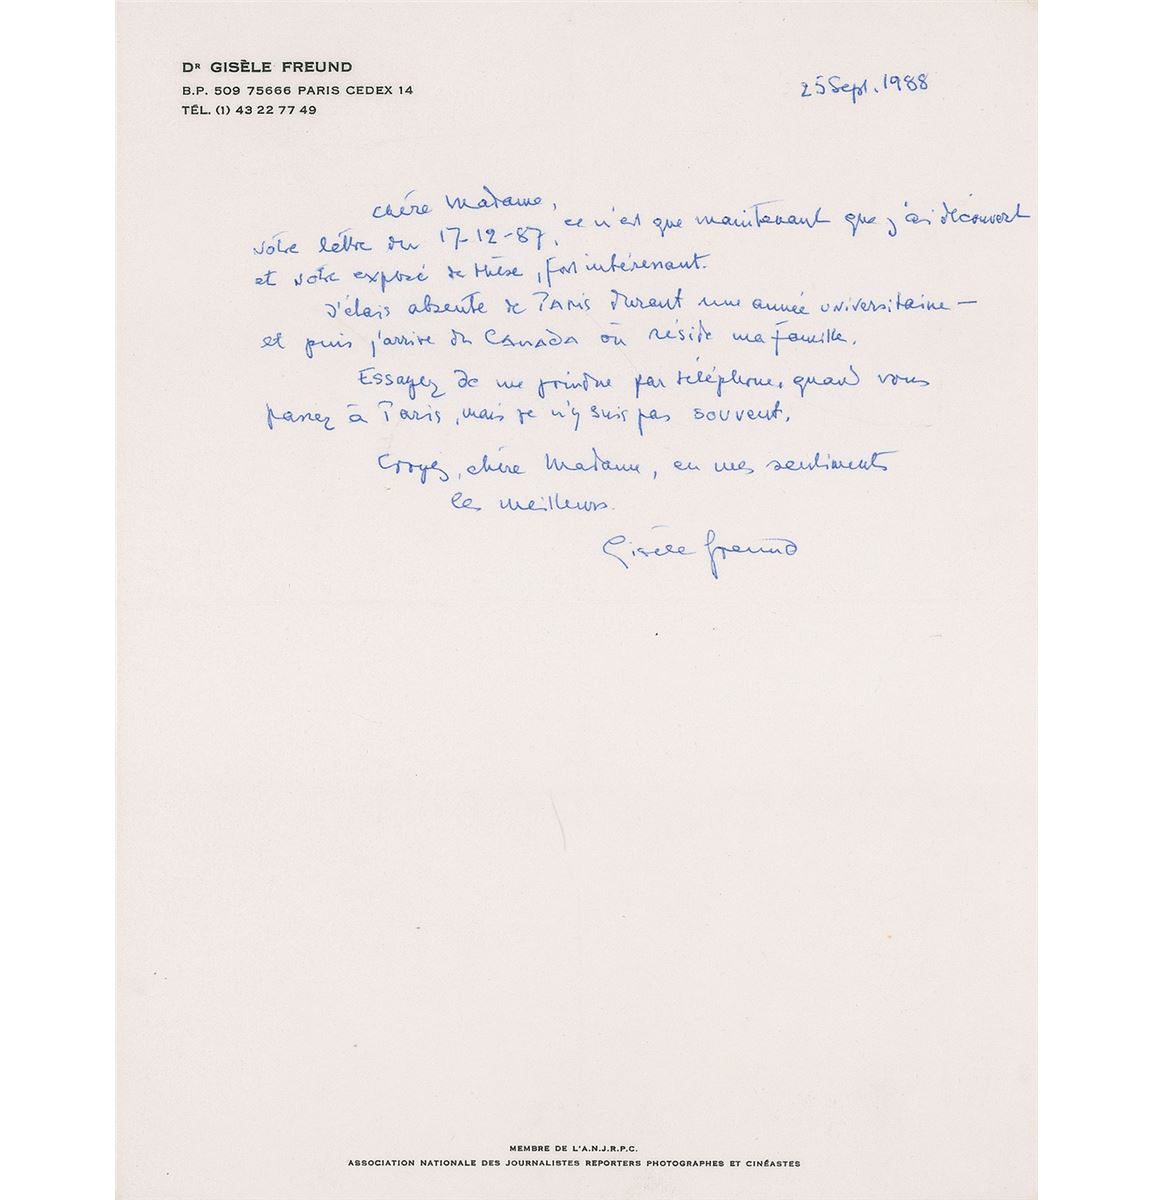 DR GISÈLE FREUND
B.P. 509 75666 PARIS CEDEX 14
TÉL. (1) 43 22 77 49
25 Sept. 1988
Chère Madame,
ce n'est que maintenant que j'ai découvert
votre lettre du 17-12-87,
et votre exposé de thèse, fort intéressant.
J'étais absente de Paris durant une année universitaire —
et puis j'arrive du CANADA où réside ma famille.
Essayez de me joindre par téléphone, quand vous
passez à Paris, mais je n'y suis pas souvent.
Croyez, chère Madame, en mes sentiments
les meilleurs.
Gisèle Freund
MEMBRE DE L'A.N.J.R.P.C.
ASSOCIATION NATIONALE DES JOURNALISTES REPORTERS PHOTOGRAPHES ET CINÉASTES